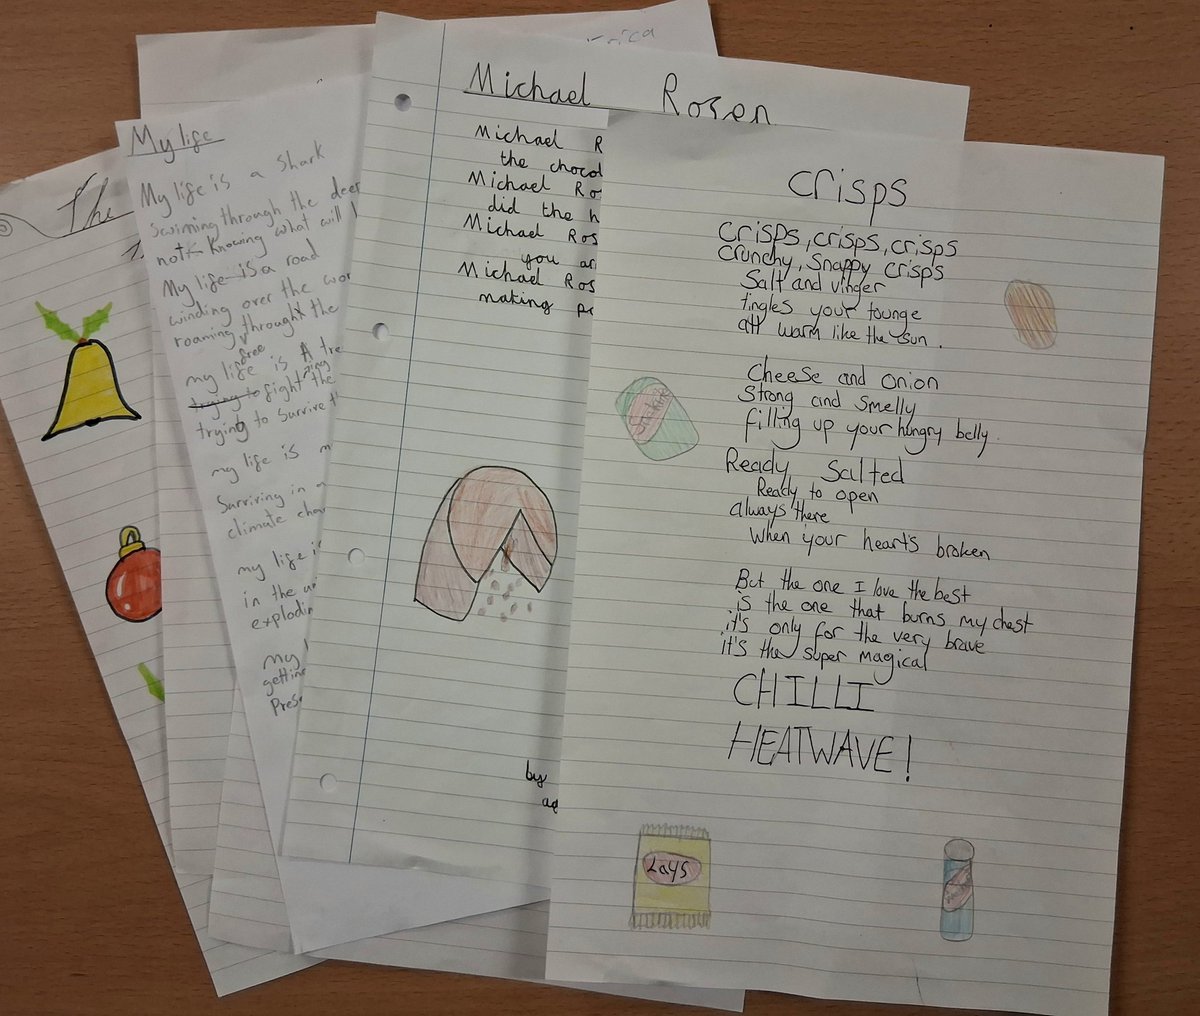 The
My life
My life is a shark
Swimming through the deep
not knowing what will
My life is a road
winding over the wor
roaming throught the
free
my life is A tre
trying to fight ing the
trying to survive t
my life is m
Surviving in a
climate cha
my life i
in the un
explodin
my l
getting
Prese
Michael Rosen
Michael R
the chocol
Michael Ro
did the h
Michael Ros
you ar
Michael Ros
making pe
by
ag
Crisps
Crisps, crisps, crisps
Crunchy, Snappy crisps
Salt and vinger
tingles your tounge
all warm like the sun.
Cheese and onion
Strong and smelly
filling up your hungry belly.
Ready Salted
Ready to open
always there
When your hearts broken
But the one I love the best
is the one that burns my chest
it's only for the very brave
it's the super magical
CHILLI
HEATWAVE!
Lays